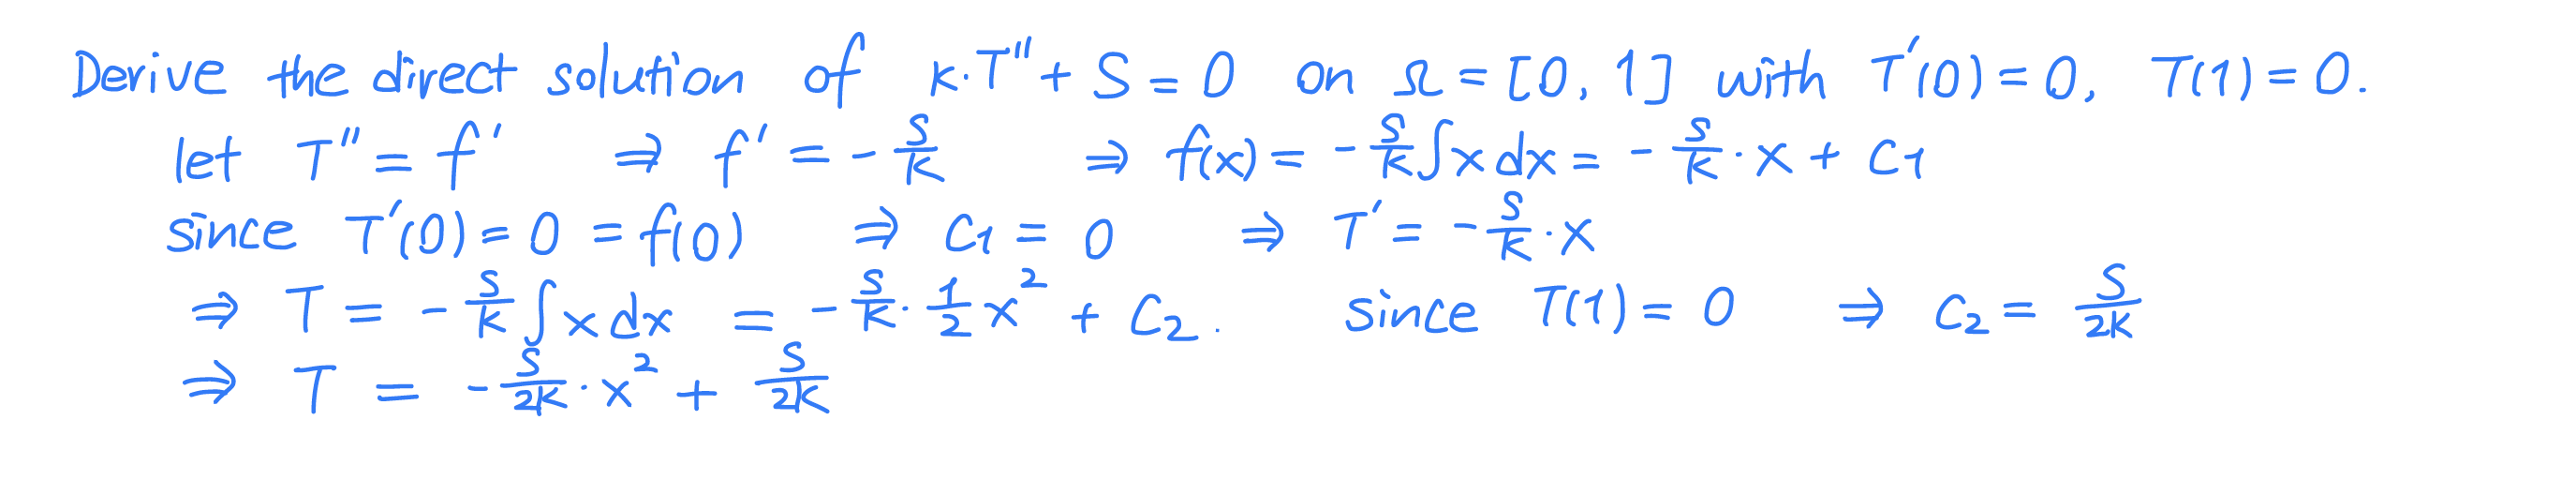 Derive the direct solution of k·T'' + S = 0 on Ω = [0, 1] with T'(0) = 0, T(1) = 0.
let T'' = f' ⇒ f' = -\frac{S}{k} ⇒ f(x) = -\frac{S}{k}∫x dx = -\frac{S}{k}·x + C_1
since T'(0) = 0 = f(0) ⇒ C_1 = 0 ⇒ T' = -\frac{S}{k}·x
⇒ T = -\frac{S}{k}∫x dx = -\frac{S}{k}·\frac{1}{2}x^2 + C_2. since T(1) = 0 ⇒ C_2 = \frac{S}{2k}
⇒ T = -\frac{S}{2k}·x^2 + \frac{S}{2k}